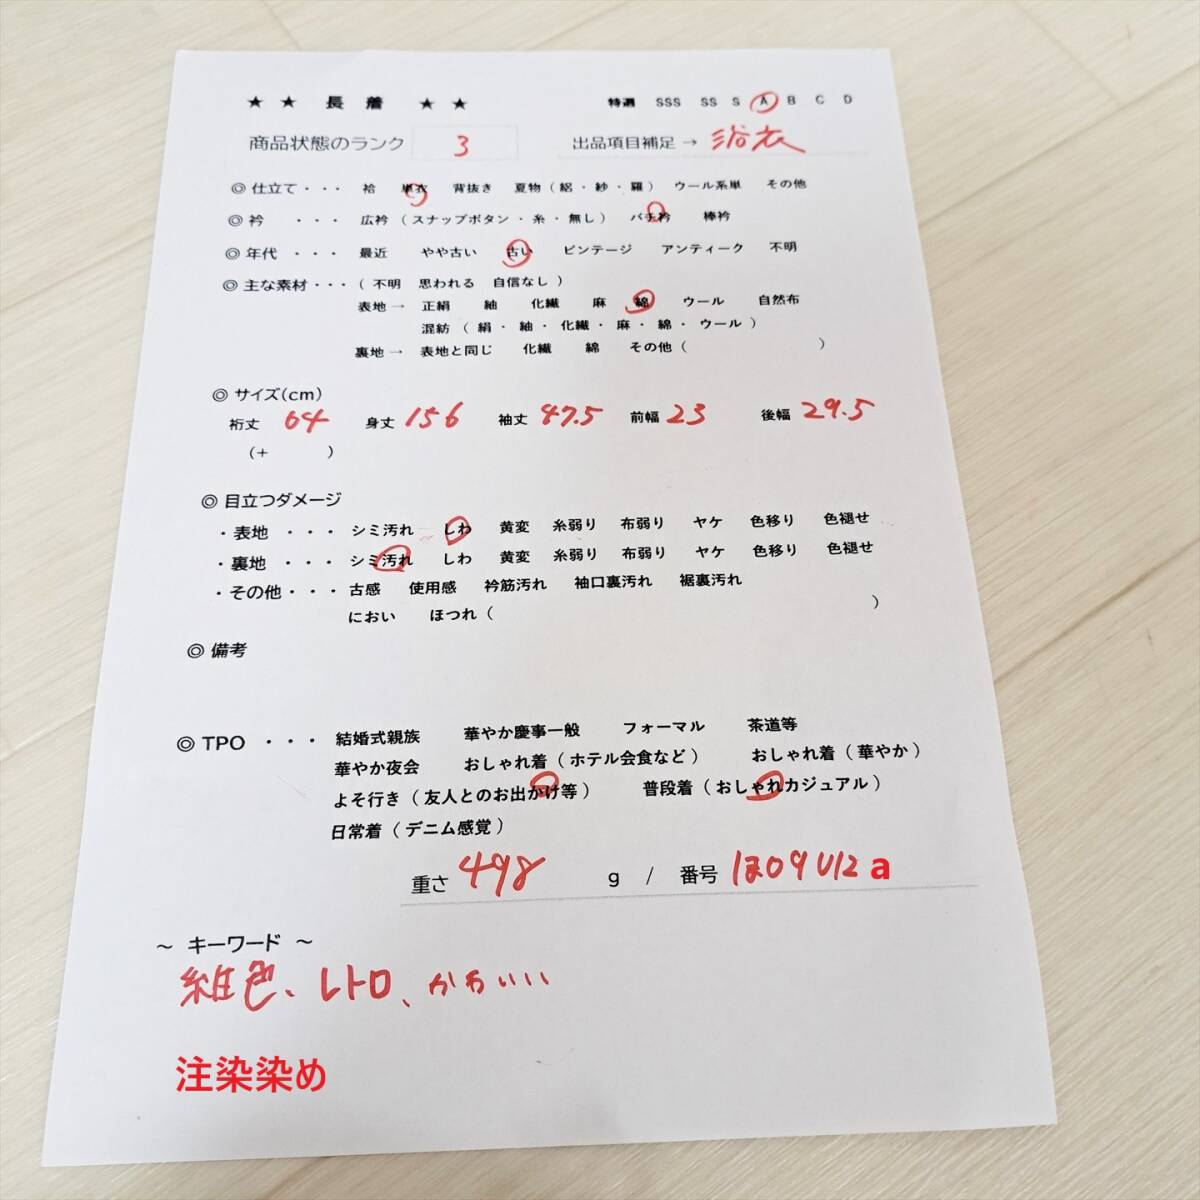 ★ ★ 長 着 ★ ★ 特選 SSS SS S A B C D
商品状態のランク 3 出品項目補足 → 浴衣
◎ 仕立て・・・ 袷 単衣 背抜き 夏物 ( 絽 ・ 紗 ・ 羅 ) ウール系単 その他
◎ 衿 ・・・ 広衿 ( スナップボタン ・ 糸 ・ 無し ) バチ衿 棒衿
◎ 年代 ・・・ 最近 やや古い 古い ビンテージ アンティーク 不明
◎ 主な素材・・・( 不明 思われる 自信なし )
表地 → 正絹 紬 化繊 麻 綿 ウール 自然布
混紡 ( 絹 ・ 紬 ・ 化繊 ・ 麻 ・ 綿 ・ ウール )
裏地 → 表地と同じ 化繊 綿 その他 ( )
◎ サイズ(cm)
裄丈 64 身丈 156 袖丈 47.5 前幅 23 後幅 29.5
(+ )
◎ 目立つダメージ
・表地 ・・・ シミ汚れ しわ 黄変 糸弱り 布弱り ヤケ 色移り 色褪せ
・裏地 ・・・ シミ汚れ しわ 黄変 糸弱り 布弱り ヤケ 色移り 色褪せ
・その他・・・ 古感 使用感 衿筋汚れ 袖口裏汚れ 裾裏汚れ
におい ほつれ ( )
◎ 備考
◎ TPO ・・・ 結婚式親族 華やか慶事一般 フォーマル 茶道等
華やか夜会 おしゃれ着 ( ホテル会食など ) おしゃれ着 ( 華やか )
よそ行き ( 友人とのお出かけ等 ) 普段着 ( おしゃれカジュアル )
日常着 ( デニム感覚 )
重さ 498 g / 番号 ほ09U12 a
～ キーワード ～
紺色、レトロ、かわいい
注染染め